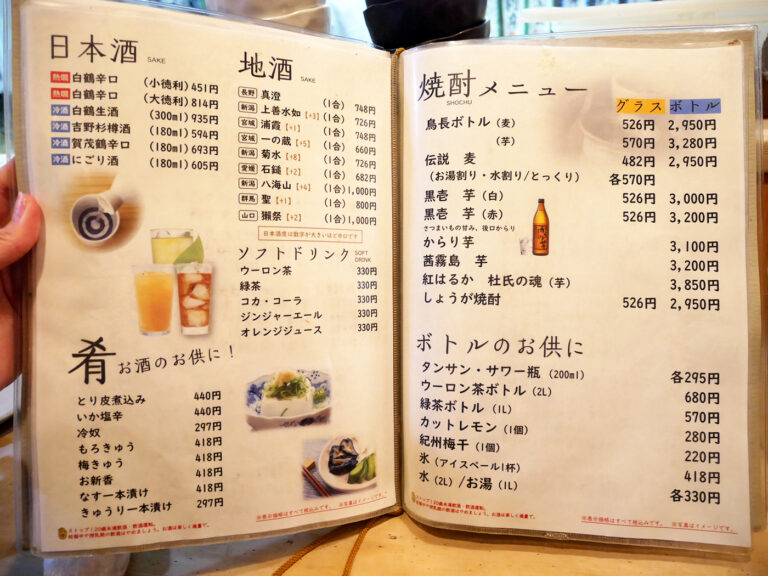 日本酒 SAKE
熱燗 白鶴辛口 (小徳利) 451円
熱燗 白鶴辛口 (大徳利) 814円
冷酒 白鶴生酒 (300ml) 935円
冷酒 吉野杉樽酒 (180ml) 594円
冷酒 賀茂鶴辛口 (180ml) 693円
冷酒 にごり酒 (180ml) 605円
地酒 SAKE
長野 真澄 (1合) 748円
新潟 上善如水【+3】 (1合) 726円
宮城 浦霞【+1】 (1合) 748円
宮城 一の蔵【+5】 (1合) 660円
新潟 菊水【+8】 (1合) 726円
愛媛 石鎚【+2】 (1合) 682円
新潟 八海山【+4】 (1合) 1,000円
群馬 聖【+1】 (1合) 800円
山口 獺祭【+2】 (1合) 1,000円
日本酒度は数字が大きいほど辛口です
ソフトドリンク SOFT DRINK
ウーロン茶 330円
緑茶 330円
コカ・コーラ 330円
ジンジャーエール 330円
オレンジジュース 330円
肴 お酒のお供に!
とり皮煮込み 440円
いか塩辛 440円
冷奴 297円
もろきゅう 418円
梅きゅう 418円
お新香 418円
なす一本漬け 418円
きゅうり一本漬け 297円
ストップ!20歳未満飲酒・飲酒運転。
妊娠中や授乳期の飲酒はやめましょう。お酒は楽しく適量で。
※表示価格はすべて税込みです。 ※写真はイメージです。
焼酎メニュー
SHOCHU
グラス ボトル
鳥長ボトル (麦) 526円 2,950円
(芋) 570円 3,280円
伝説 麦 482円 2,950円
(お湯割り・水割り/とっくり) 各570円
黒壱 芋 (白) 526円 3,000円
黒壱 芋 (赤) 526円 3,200円
さつまいもの甘み、後口からり
からり芋 3,100円
茜霧島 芋 3,200円
紅はるか 杜氏の魂 (芋) 3,850円
しょうが焼酎 526円 2,950円
ボトルのお供に
タンサン・サワー瓶 (200ml) 各295円
ウーロン茶ボトル (2L) 680円
緑茶ボトル (1L) 570円
カットレモン (1個) 280円
紀州梅干 (1個) 220円
氷 (アイスペール1杯) 418円
水 (2L) /お湯 (1L) 各330円
ストップ!20歳未満飲酒・飲酒運転。
妊娠中や授乳期の飲酒はやめましょう。お酒は楽しく適量で。
※表示価格はすべて税込みです。 ※写真はイメージです。